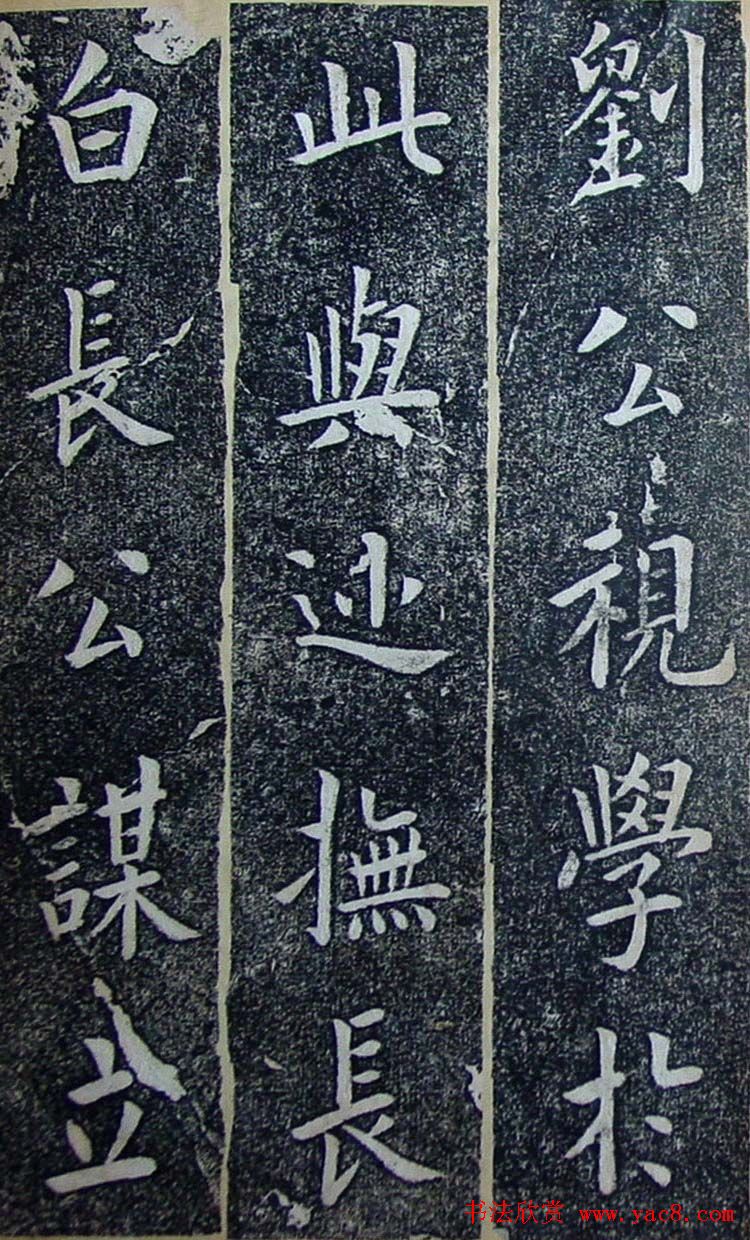 劉公視學於
此與迹撫長
白長公謀立
书法欣赏 www.yac8.com